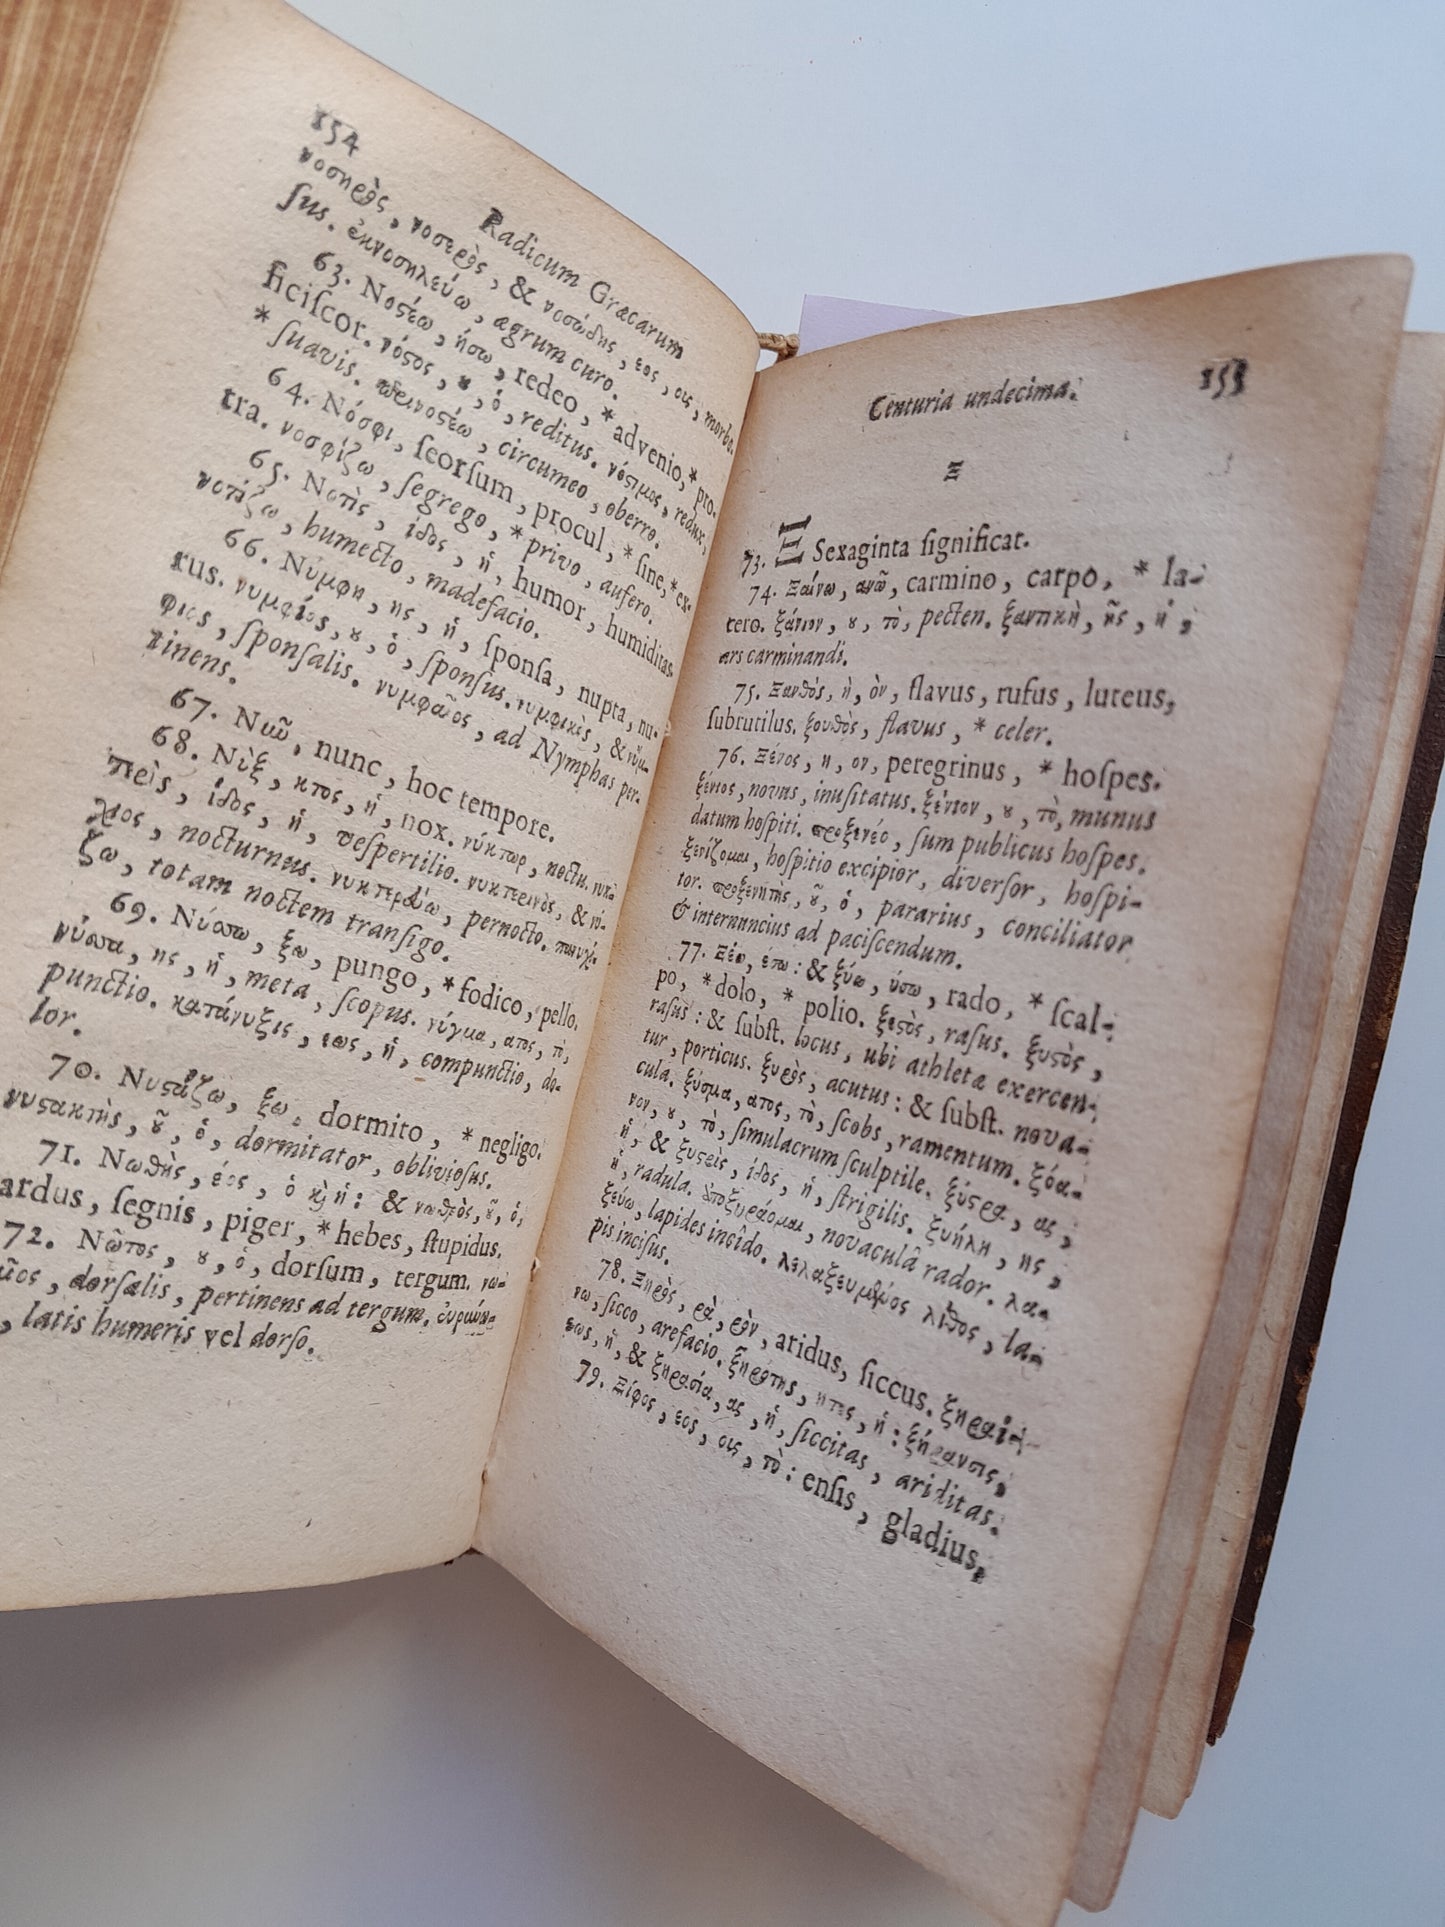 154
Radicum Græcarum
νοσηρὸς, νοσερὸς, & νοσώδης, εος, ους, morbo-
ſus. ἐκνοσηλεύω, ægrum curo.
63. Νοςέω, ήσω, redeo, * advenio, * pro-
ficiſcor. νόςος, ȣ, ὁ, reditus. νόςιμος, redux,
* ſuavis. περινοςέω, circumeo, oberro.
64. Νόσφι, ſeorſum, procul, * ſine, * ex-
tra. νοσφίζω, ſegrego, * privo, aufero.
65. Νοτὶς, ίδος, ἡ, humor, humiditas.
νοτίζω, humecto, madefacio.
66. Νύμφη, ης, ἡ, ſponſa, nupta, nu-
rus. νυμφίος, ȣ, ὁ, ſponſus. νυμφικὸς, & νύμ-
φιος, ſponſalis. νυμφαῖος, ad Nymphas per-
tinens.
67. Νῦν, nunc, hoc tempore.
68. Νὺξ, κτος, ἡ, nox. νύκτωρ, noctu. νυκ-
τερὶς, ίδος, ἡ, veſpertilio. νυκτερινὸς, & νύ-
χιος, nocturnus. νυκτερεύω, pernocto. παννυχί-
ζω, totam noctem tranſigo.
69. Νύσσω, ξω, pungo, * fodico, pello.
νύσσα, ης, ἡ, meta, ſcopus. νύγμα, ατος, τὸ,
punctio. κατάνυξις, εως, ἡ, compunctio, do-
lor.
70. Νυςάζω, ξω, dormito, * negligo.
νυςακτὴς, ȣ͂, ὁ, dormitator, oblivioſus.
71. Νωθὴς, έος, ὁ ϗ ἡ: & νωθρὸς, ȣ͂, ὁ,
ardus, ſegnis, piger, * hebes, ſtupidus.
72. Νῶτος, ȣ, ὁ, dorſum, tergum. νω-
dorſalis, pertinens ad tergum.
, latis humeris vel dorſo.
Centuria undecima. 155
Ξ
73. Ξ Sexaginta ſignificat.
74. Ξαίνω, ανῶ, carmino, carpo, * la-
cero. ξάνιον, ȣ, τὸ, pecten. ξαντικὴ, ῆς, ἡ,
ars carminandi.
75. Ξανθός, ὴ, ὸν, flavus, rufus, luteus,
ſubrutilus. ξουθὸς, flavus, * celer.
76. Ξένος, η, ον, peregrinus, * hoſpes.
ξένιος, novus, inuſitatus. ξένιον, ȣ, τὸ, munus
datum hoſpiti. προξενέω, ſum publicus hoſpes.
ξενίζομαι, hoſpitio excipior, diverſor, hoſpi-
tor. προξενητὴς, ȣ͂, ὁ, pararius, conciliator
& internuncius ad paciſcendum.
77. Ξέω, έσω: & ξύω, ύσω, rado, * ſcal-
po, * dolo, * polio. ξεςὸς, raſus. ξυςὸς,
raſus: & ſubſt. locus, ubi athletæ exercen-
tur, porticus. ξυρὸς, acutus: & ſubſt. nova-
cula. ξύσμα, ατος, τὸ, ſcobs, ramentum. ξόα-
νον, ȣ, τὸ, ſimulacrum ſculptile. ξύςρα, ας,
ἡ, & ξυςρὶς, ίδος, ἡ, ſtrigilis. ξυήλη, ης,
ἡ, radula. ἀποξυράομαι, novaculâ rador. λα-
ξεύω, lapides incîdo. λελαξευμένος λίθος, la-
pis inciſus.
78. Ξηρὸς, ρὰ, ρὸν, aridus, ſiccus. ξηραί-
νω, ſicco, arefacio. ξηρότης, ητος, ἡ: ξήρανσις,
εως, ἡ, & ξηρασία, ας, ἡ, ſiccitas, ariditas.
79. Ξίφος, εος, ους, τὸ: enſis, gladius,